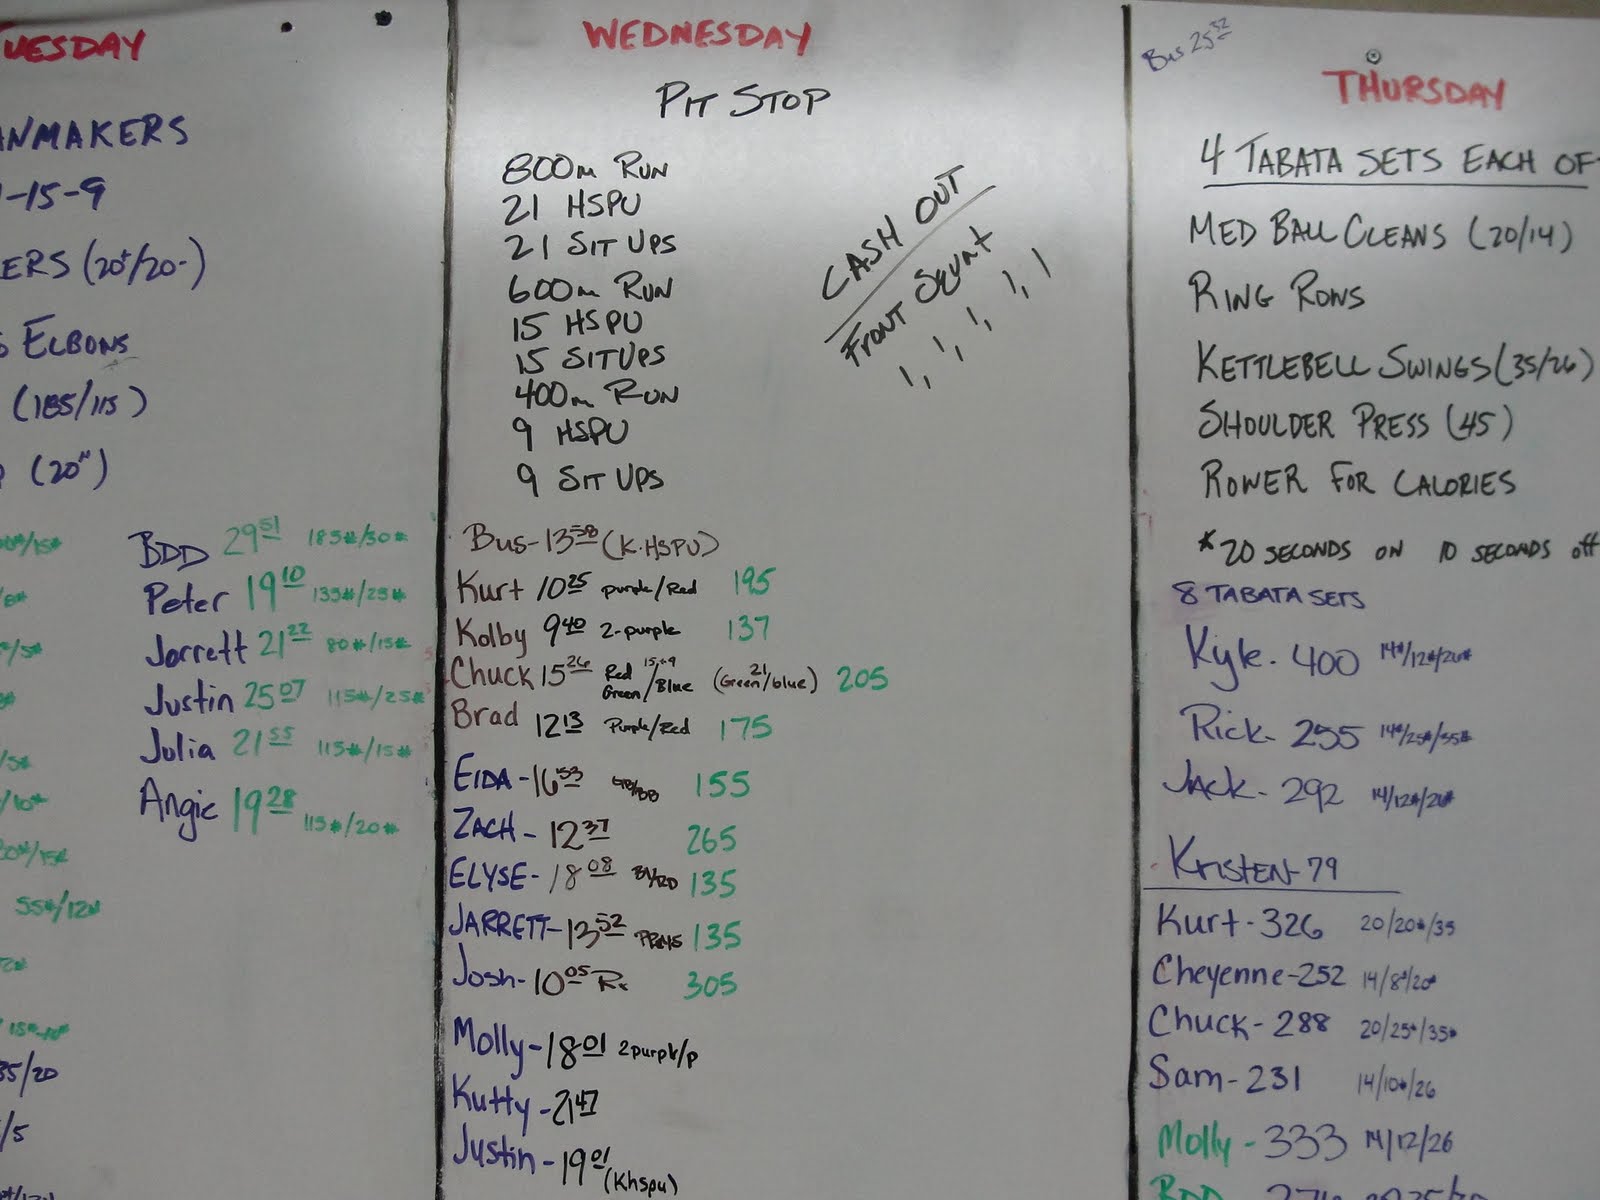 TUESDAY
ANMAKERS
-15-9
ERS (20+/20-)
ELBOWS
(185/115)
(20")
BDD 29 51 185#/30#
Peter 19 10 135#/25#
Jarrett 21 22 80#/15#
Justin 25 07 115#/25#
Julia 21 55 115#/15#
Angie 19 28 115#/20#
30#/15#
55#/12#
35/20
/5
WEDNESDAY
PIT STOP
800m RUN
21 HSPU
21 SIT UPS
600m RUN
15 HSPU
15 SITUPS
400m RUN
9 HSPU
9 SIT UPS
CASH OUT
FRONT SQUAT
1, 1, 1, 1, 1
Bus-13 58 (K.HSPU)
Kurt 10 25 purple/Red 195
Kolby 9 40 2-purple 137
Chuck 15 26 Red Green/Blue 15,+9 (Green/blue) 21 205
Brad 12 13 Purple/Red 175
EIDA-16 53 155
ZACH-12 37 265
ELYSE-18 08 135
JARRETT-13 52 135
Josh-10 05 Rx 305
Molly-18 01 2purple/p
Kutty-21 47
Justin-19 01 (Khspu)
Bus 25 32
THURSDAY
4 TABATA SETS EACH OF
MED BALL CLEANS (20/14)
RING ROWS
KETTLEBELL SWINGS (35/26)
SHOULDER PRESS (45)
ROWER FOR CALORIES
*20 SECONDS ON 10 SECONDS off
8 TABATA SETS
Kyle-400 14#/12#/26#
Rick-255 14#/25#/35#
Jack-292 14/12#/26#
KRISTEN-79
Kurt-326 20/20#/35
Cheyenne-252 14/8#/20#
Chuck-288 20/25#/35#
Sam-231 14/10#/26
Molly-333 14/12/26
BDD